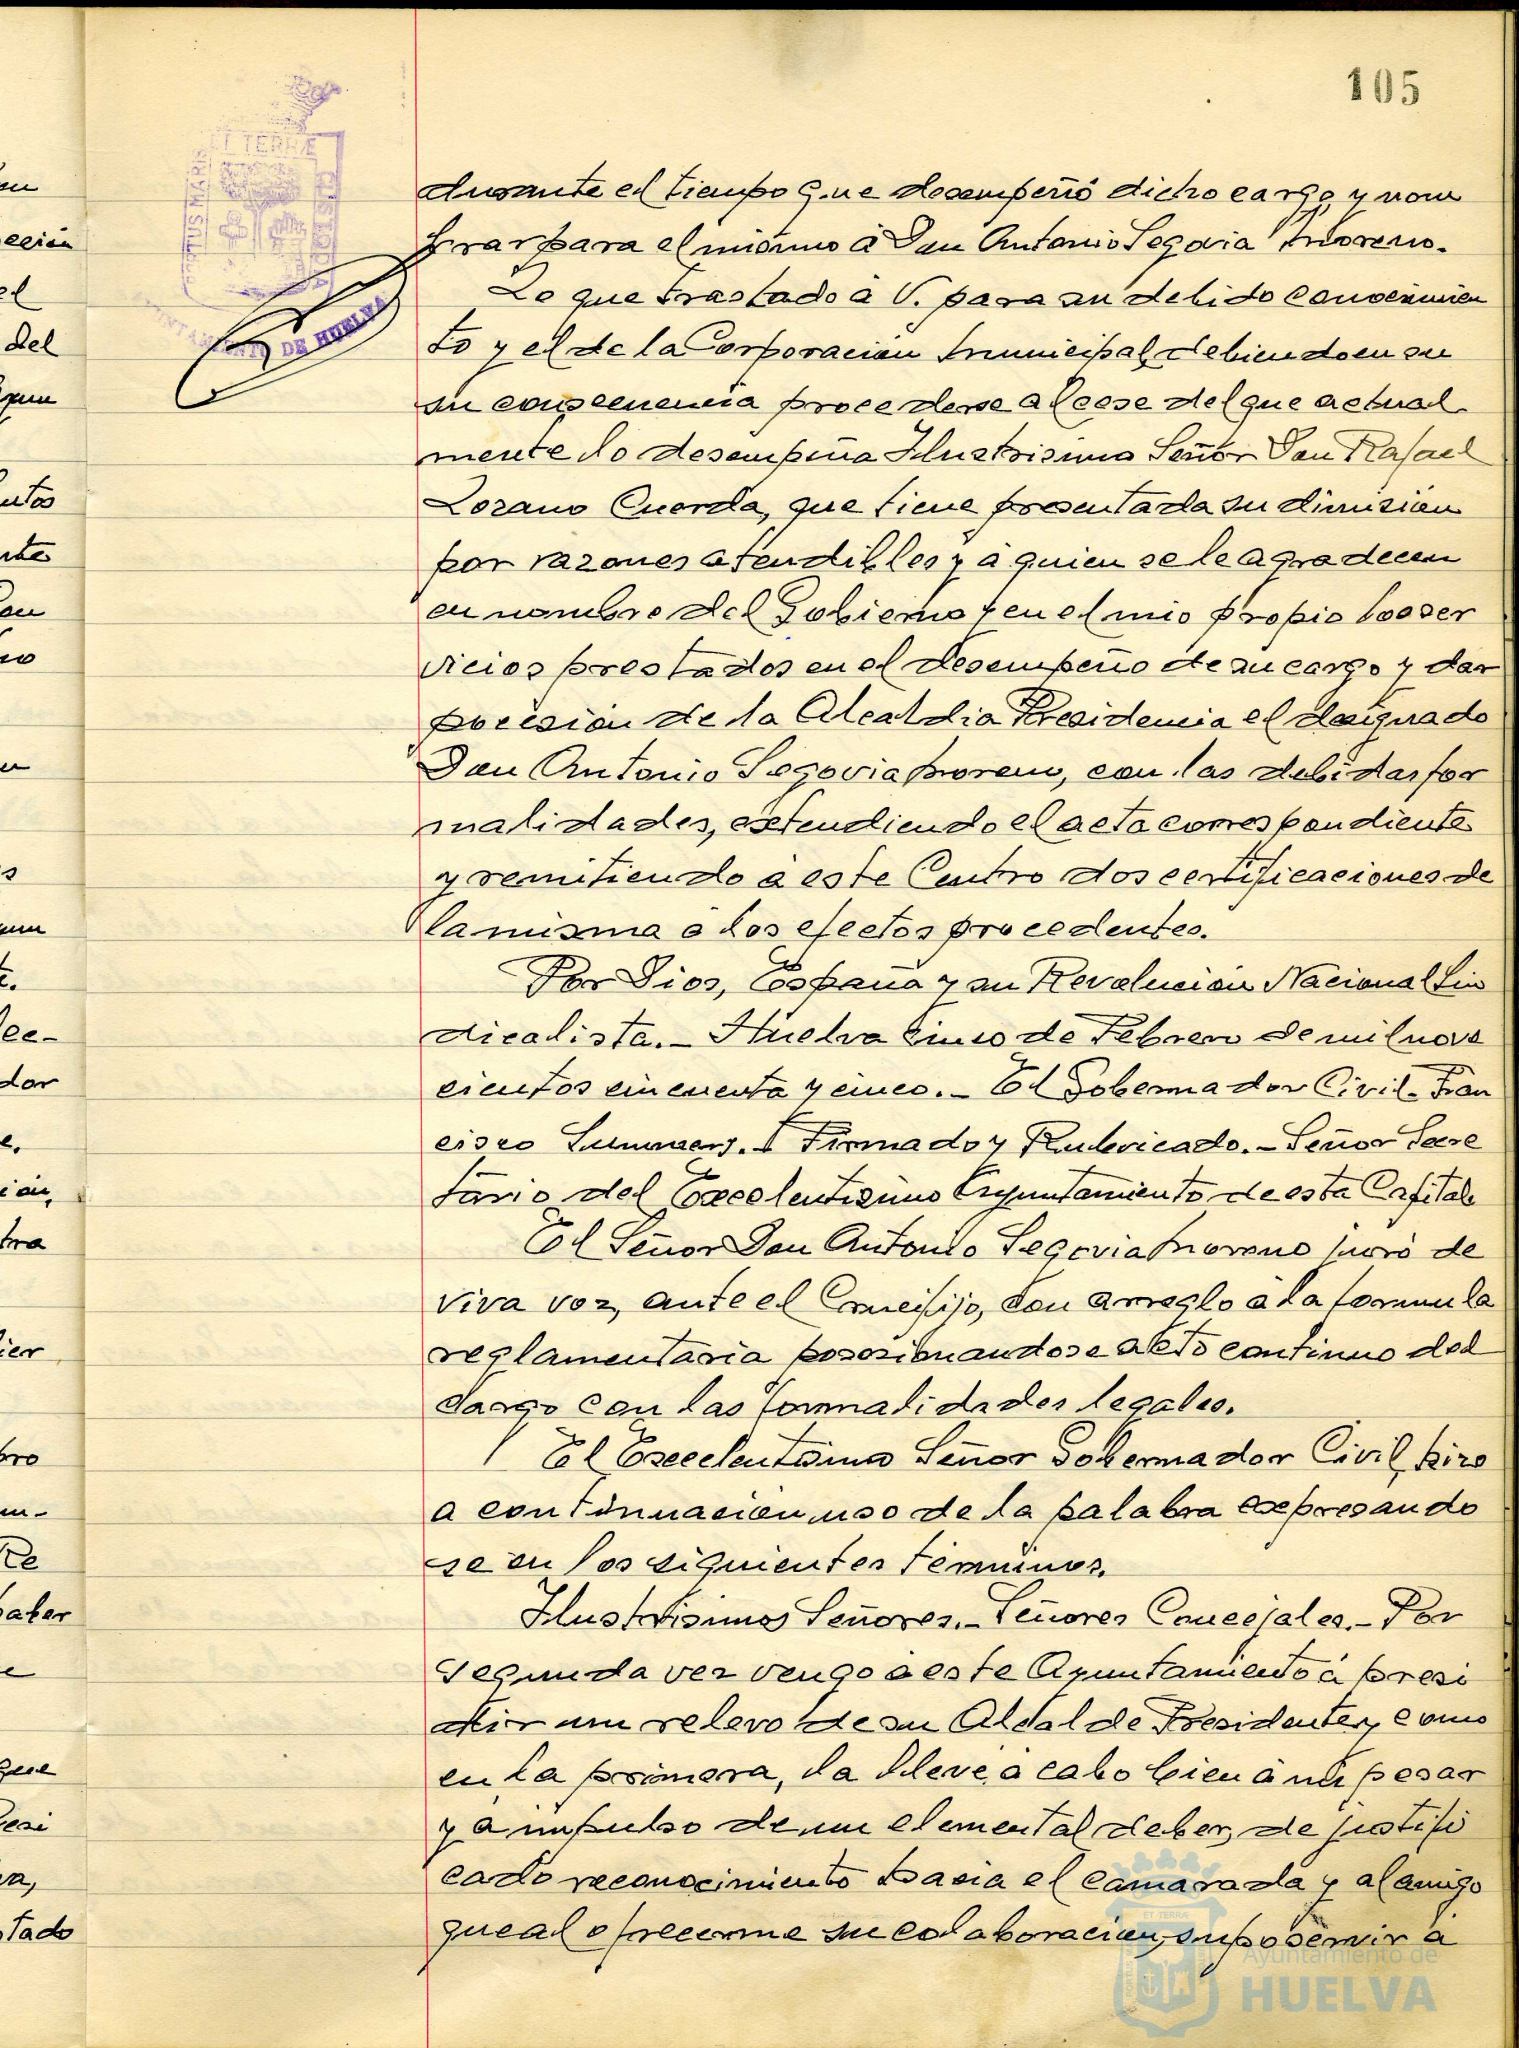 105
PORTUS MARIS ET TERRÆ CUSTODIA
AYUNTAMIENTO DE HUELVA
durante el tiempo que desempeñó dicho cargo, y nom
brar para el mismo á Don Antonio Segovia Moreno.
Lo que traslado á V. para su debido conocimien
to y el de la Corporación Municipal, debiendo en su
su consecuencia procederse al cese del que actual
mente lo desempeña Ilustrisimo Señor Don Rafael
Lozano Cuerda, que tiene presentada su dimisión
por razones atendibles y á quien se le agradecen
en nombre del Gobierno y en el mio propio los ser
vicios prestados en el desempeño de su cargo y dar
posesión de la Alcaldia Presidencia el designado
Don Antonio Segovia Moreno, con las debidas for
malidades, extendiendo el acta correspondiente
y remitiendo á este Centro dos certificaciones de
la misma á los efectos procedentes.
Por Dios, España y su Revolución Nacional Sin
dicalista.- Huelva cinco de Febrero de mil nove
cientos cincuenta y cinco.- El Gobernador Civil.- Fran
cisco Summers.- Firmado y Rubricado.- Señor Secre
tario del Excelentisimo Ayuntamiento de esta Capital.
El Señor Don Antonio Segovia Moreno juró de
viva voz, ante el Crucifijo, con arreglo á la formula
reglamentaria posesionandose acto continuo del
cargo con las formalidades legales.
El Excelentisimo Señor Gobernador Civil, hizo
a continuación uso de la palabra expresando
se en los siguientes términos.
Ilustrisimos Señores.- Señores Concejales.- Por
segunda vez vengo á este Ayuntamiento á presi
dir un relevo de su Alcalde Presidente y como
en la primera, la lleve á cabo bien á mi pesar
y a impulso de un elemental deber, de justifi
cado reconocimiento hacia el camarada y al amigo
que al ofrecerme su colaboracion, supo servir á
su
ección
el
del
utos
nte
no
del
s
te.
lec-
dor
e.
ión,
tra
ier
bro
un-
Re
haber
e
que
Presi
va,
stado
Ayuntamiento de
HUELVA